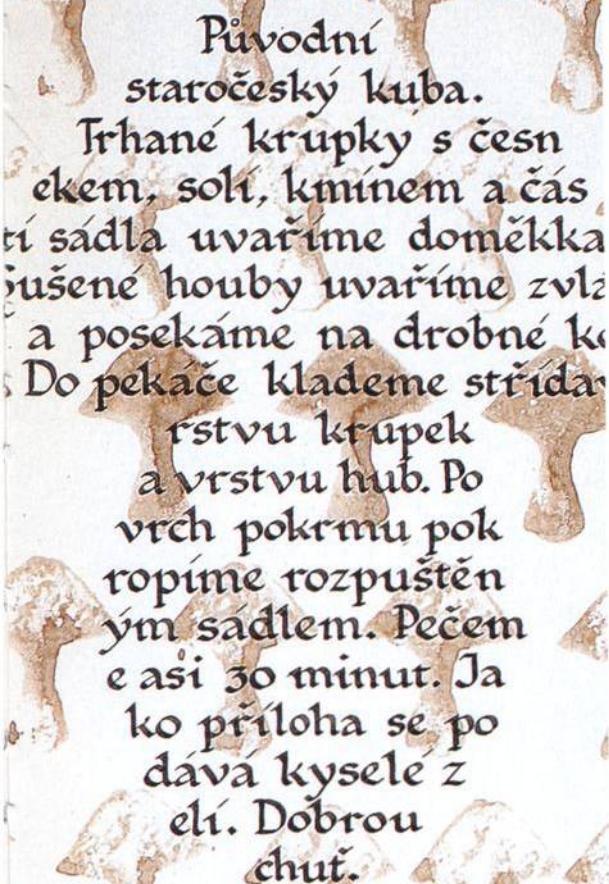 Původní
staročeský kuba.
Trhané krupky s česn
ekem, solí, kmínem a čás
tí sádla uvaříme doměkka
Sušené houby uvaříme zvlá
a posekáme na drobné k
Do pekáče klademe střída
rstvu krupek
a vrstvu hub. Po
vrch pokrmu pok
ropíme rozpuštěn
ým sádlem. Pečem
e asi 30 minut. Ja
ko příloha se po
dává kyselé z
elí. Dobrou
chuť.